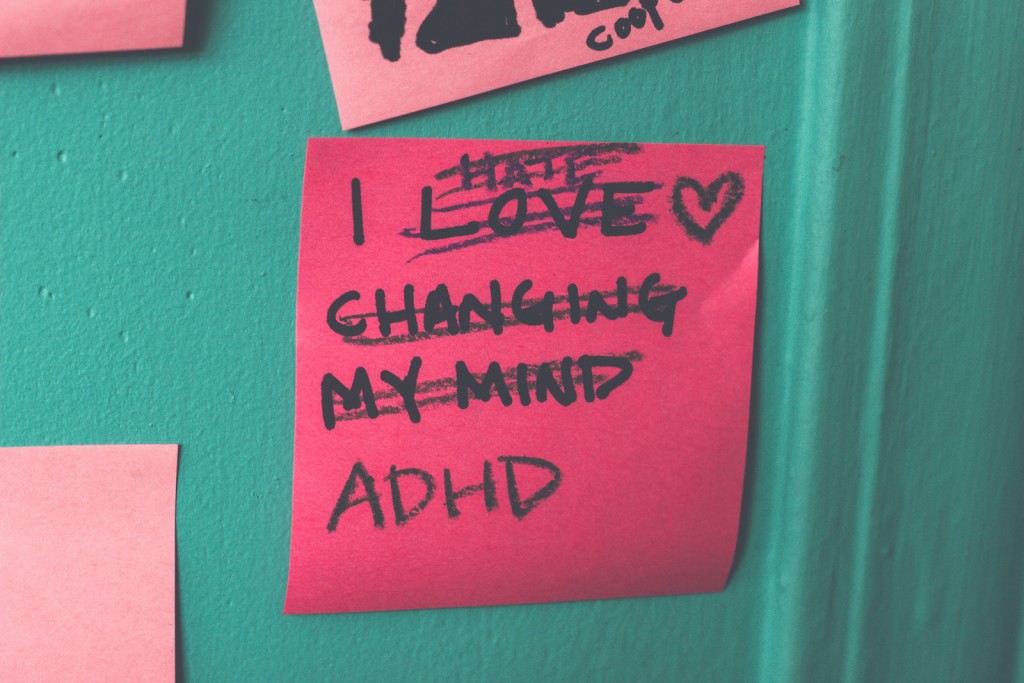 HATE
I LOVE ♡
CHANGING
MY MIND
ADHD